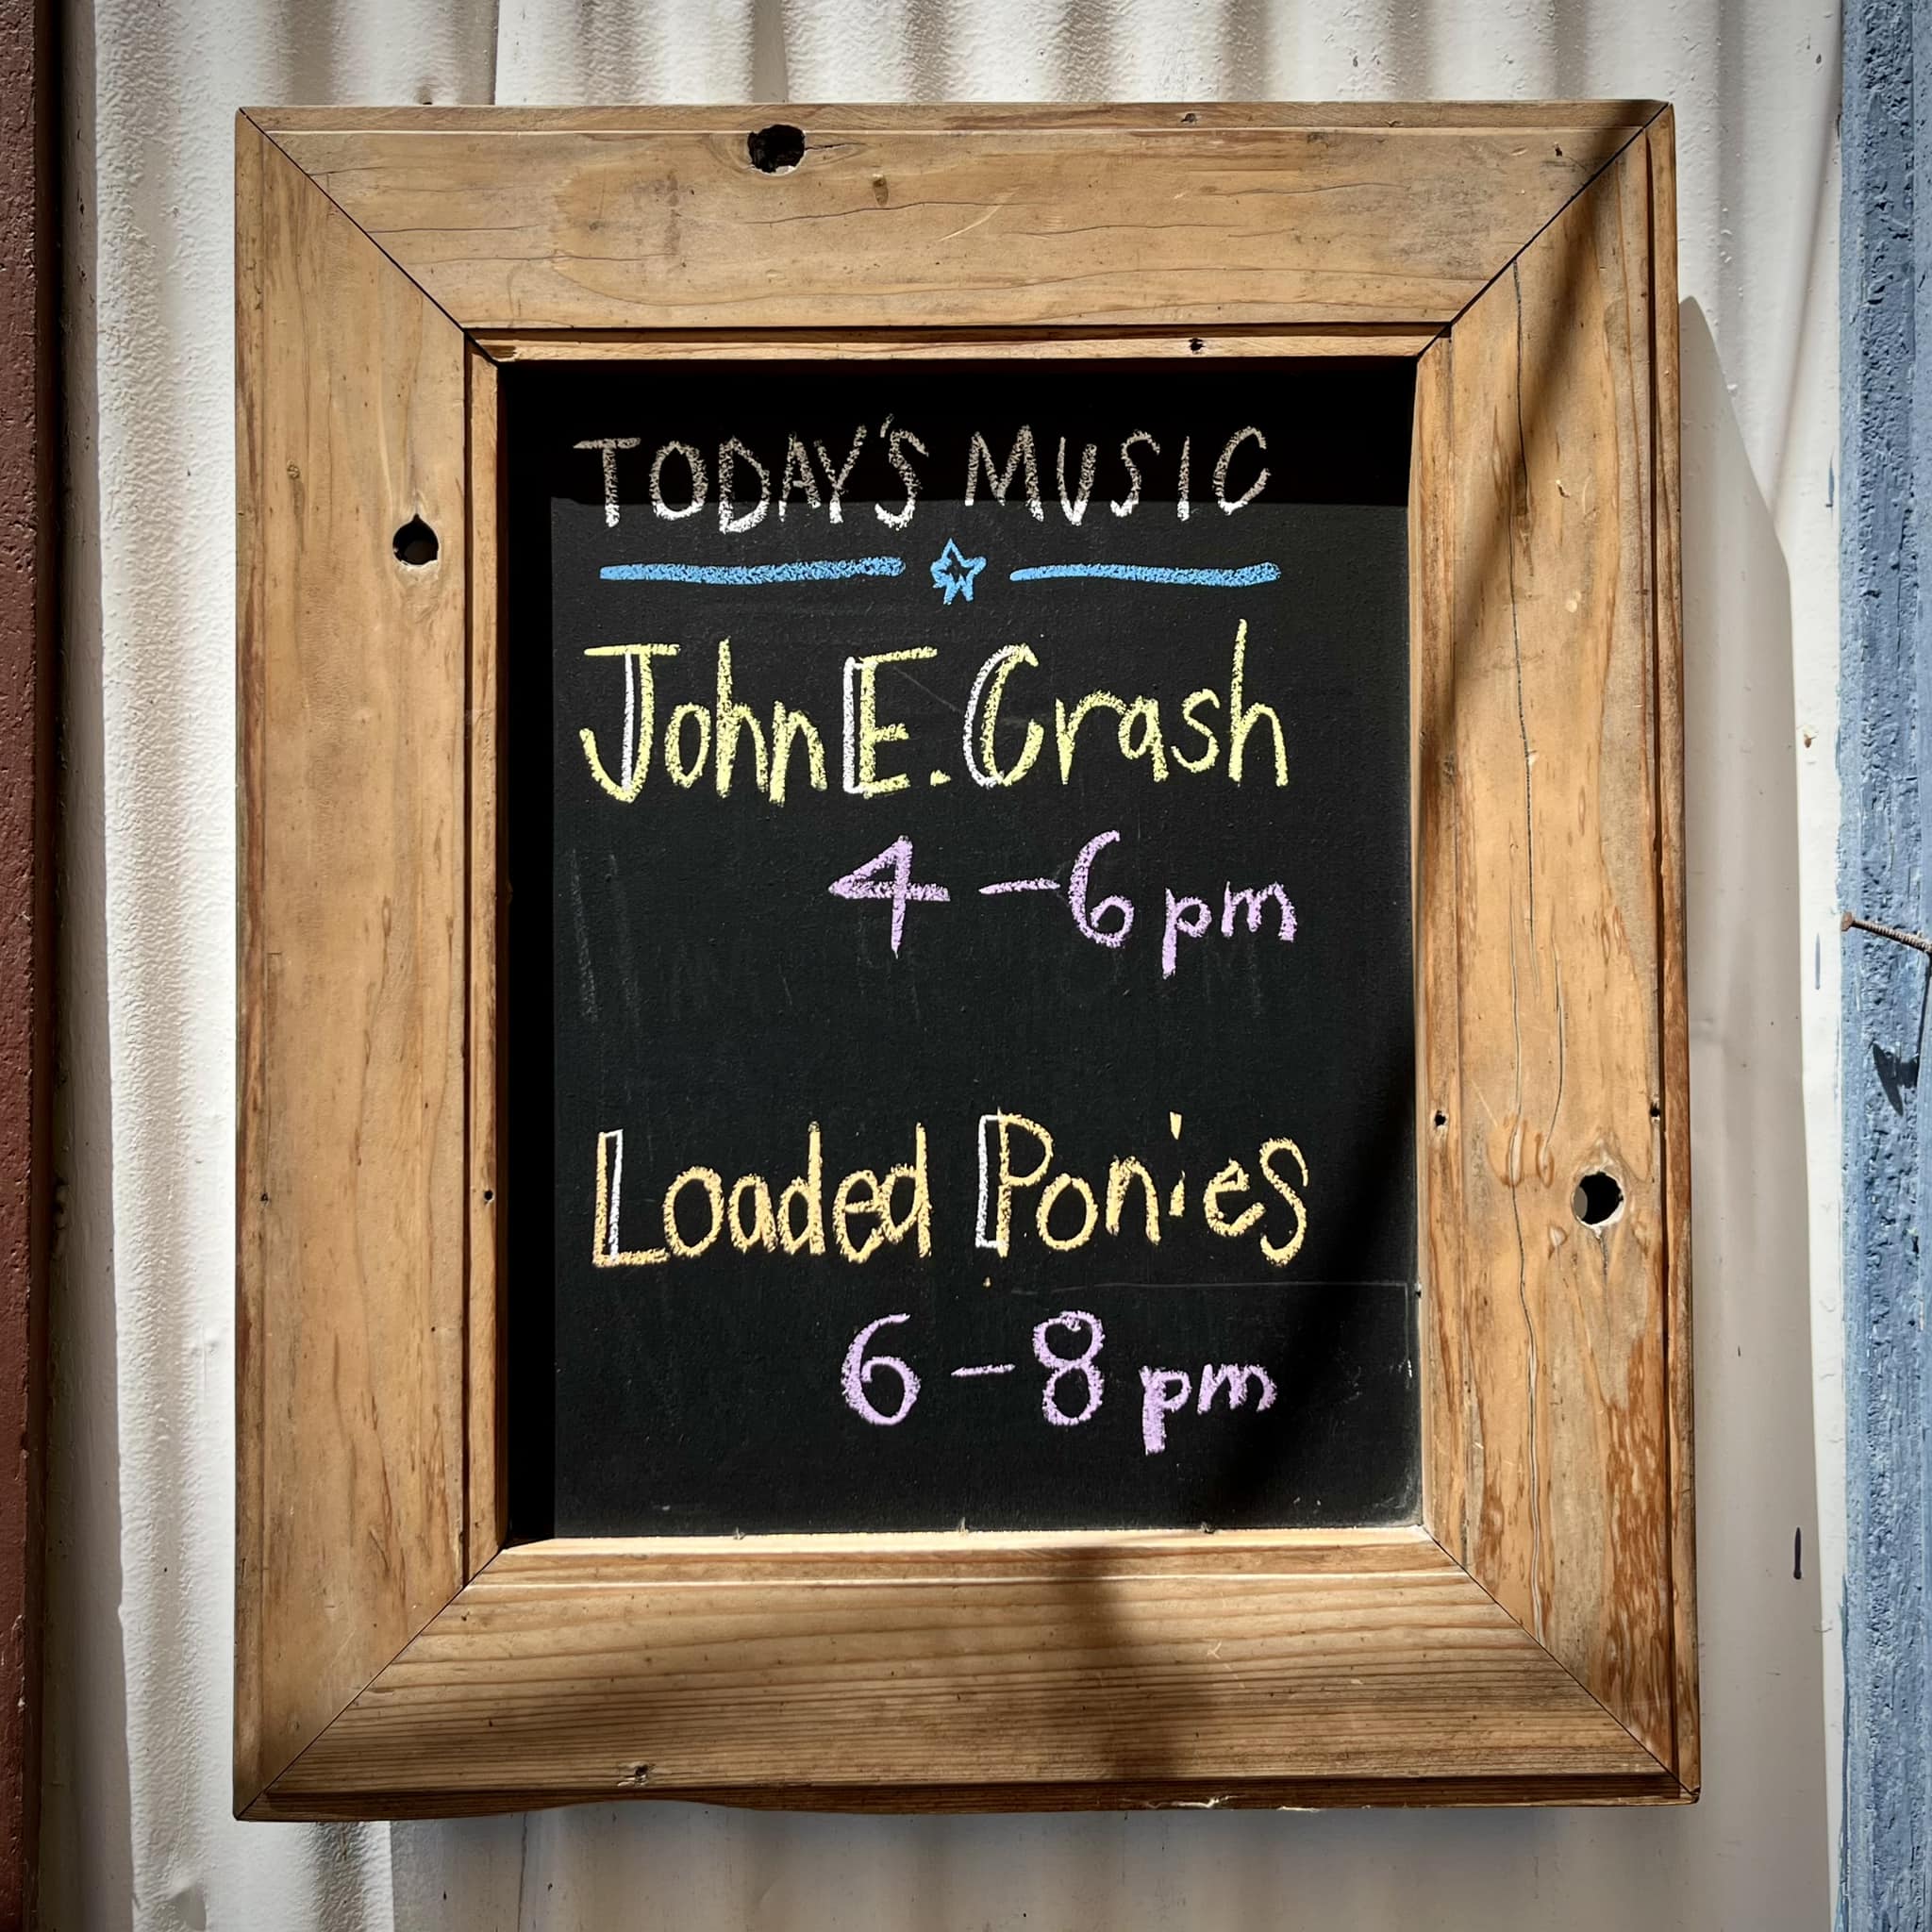 TODAY'S MUSIC
John E. Crash
4 - 6 pm
Loaded Ponies
6 - 8 pm